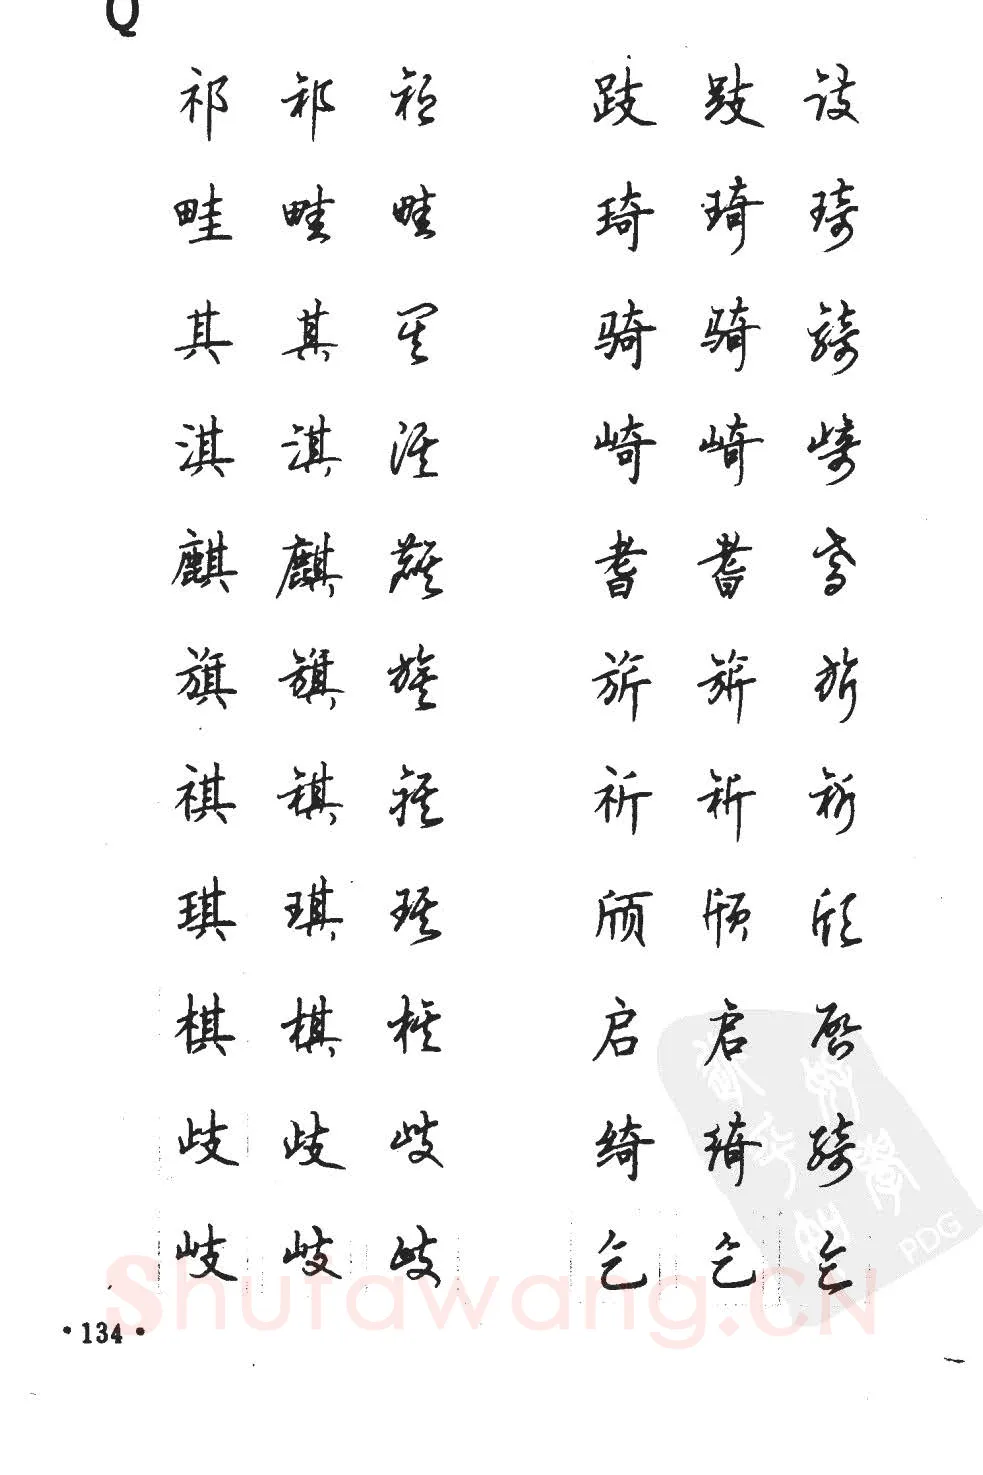 Q
祁 祁 祁
畦 畦 畦
其 其 其
淇 淇 淇
麒 麒 麒
旗 旗 旗
祺 祺 祺
琪 琪 琪
棋 棋 棋
歧 歧 歧
岐 岐 岐
跂 跂 跂
琦 琦 琦
骑 骑 骑
崎 崎 崎
耆 耆 耆
旂 旂 旂
祈 祈 祈
颀 颀 颀
启 启 启
绮 绮 绮
乞 乞 乞
PDG
Shufawang.CN
·134·